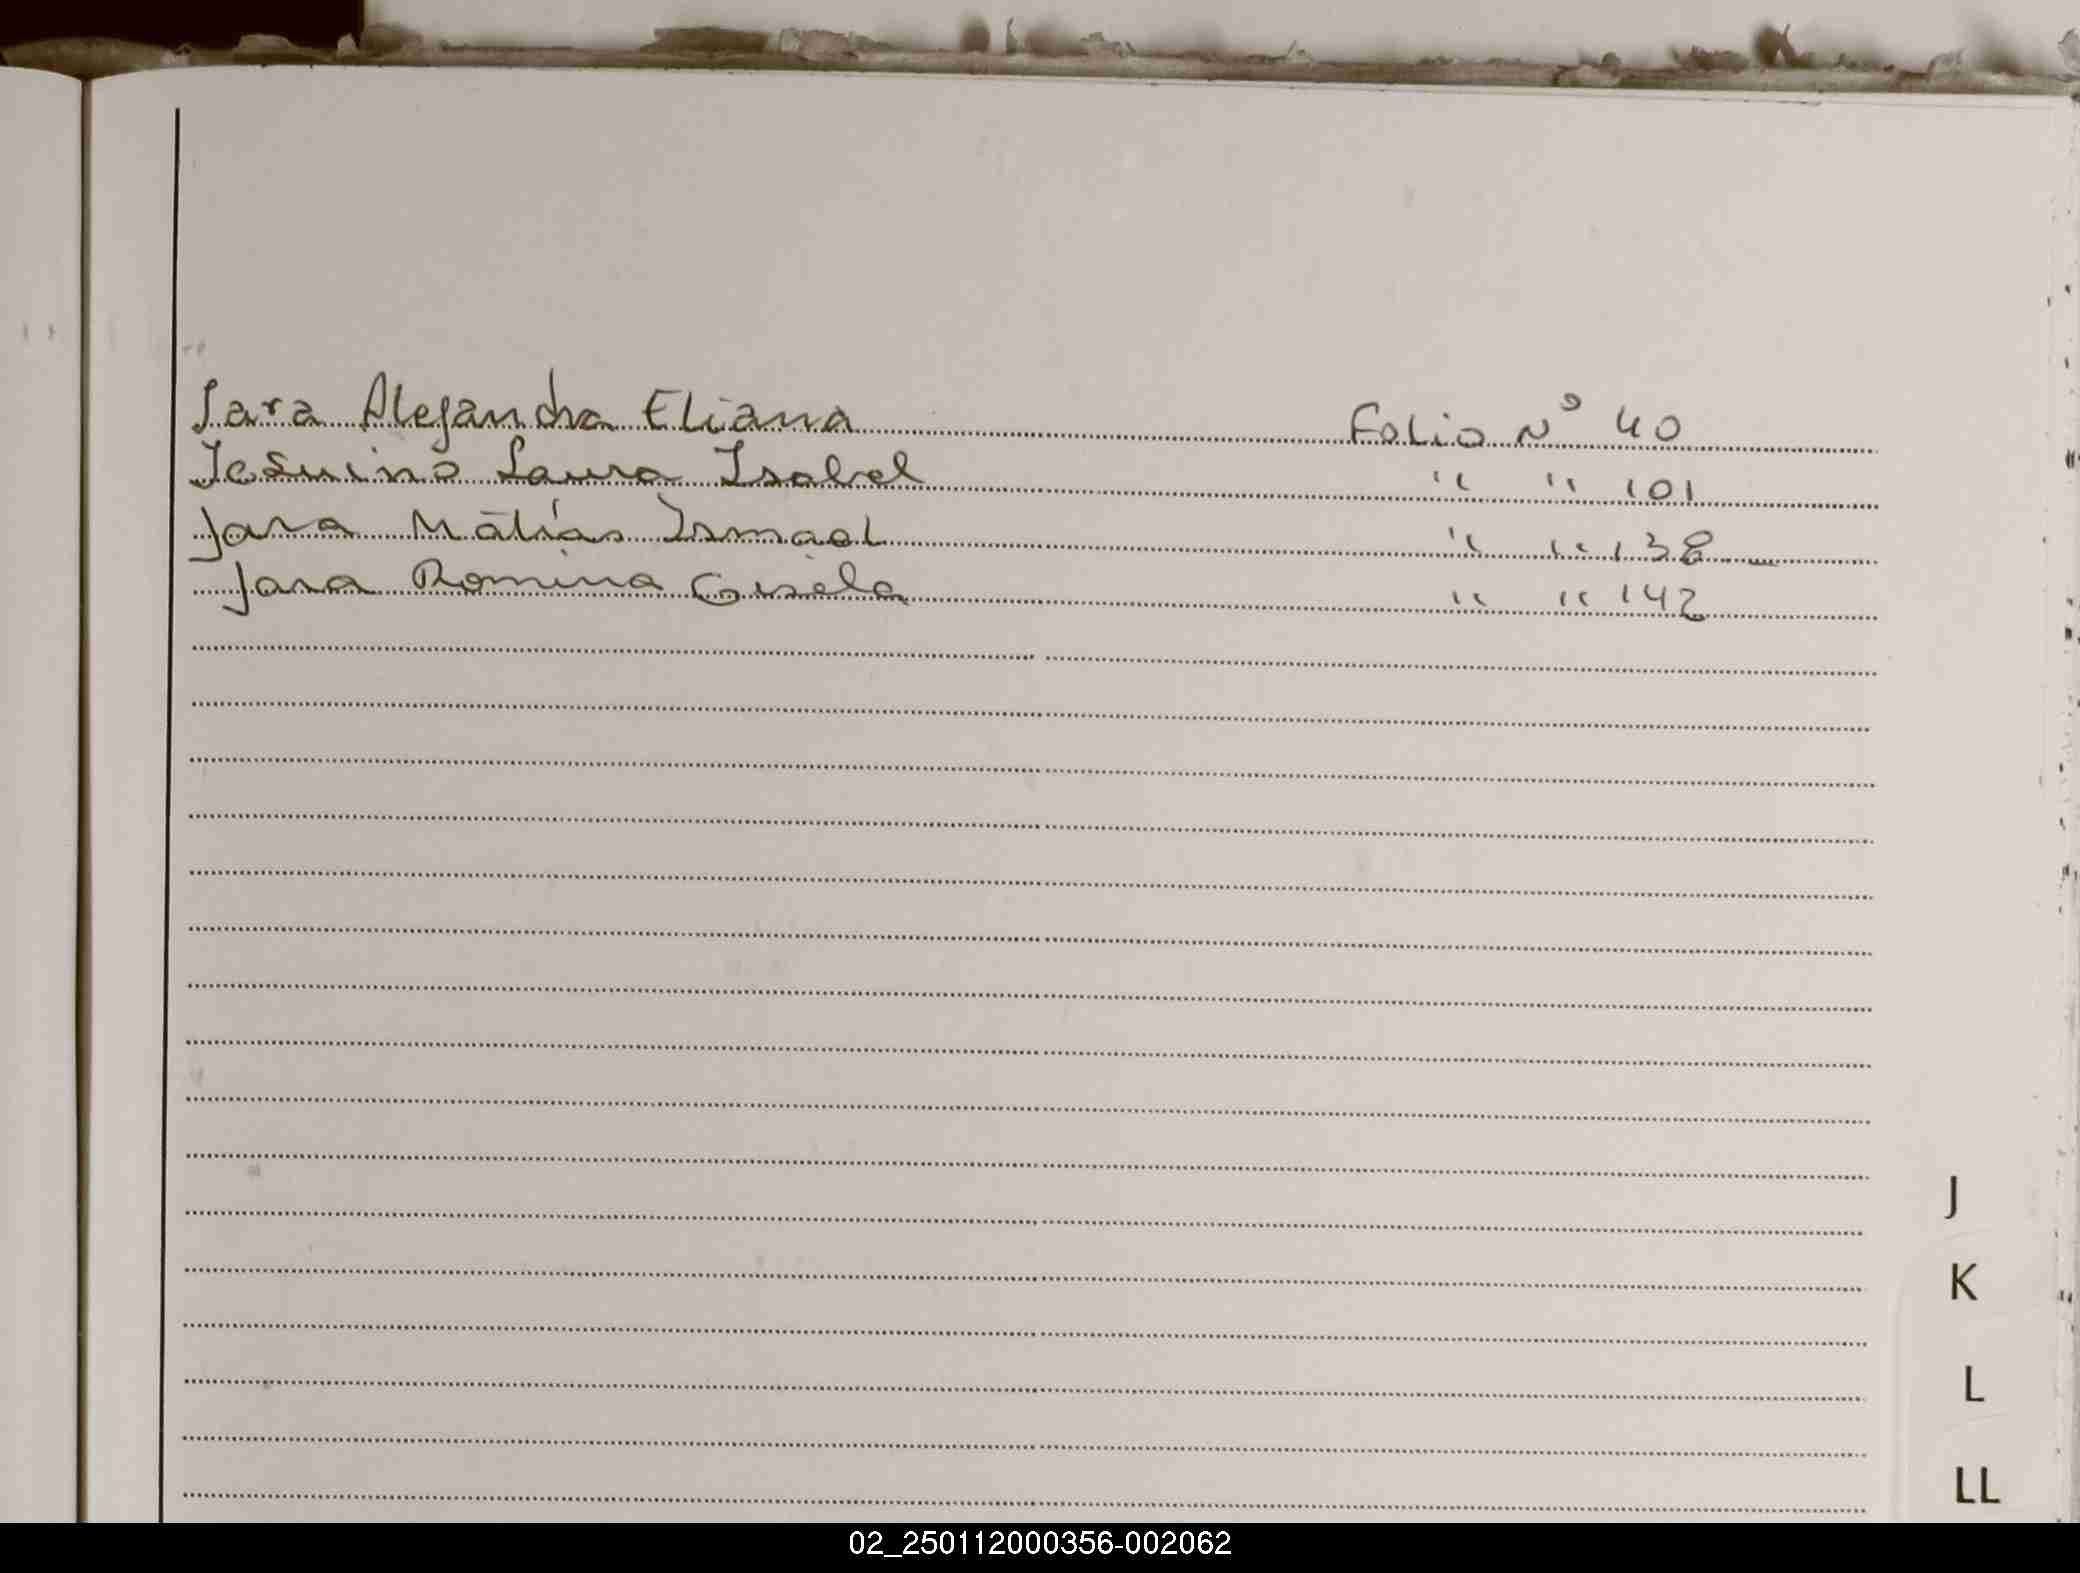 Jara Alejandra Eliana Folio Nº 40
Jesuino Laura Isabel " " 101
Jara Matías Ismael " " 138
Jara Romina Gisela " " 142
J
K
L
LL
02_250112000356-002062